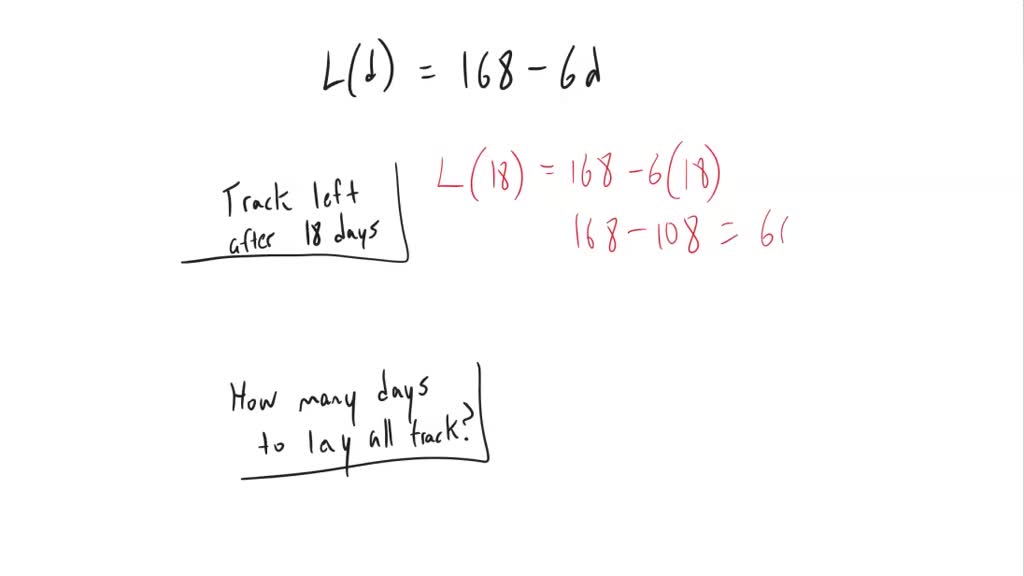 L(d) = 168 - 6d
L(18) = 168 - 6(18)
168 - 108 = 6(
Track left
after 18 days
How many days
to lay all track?